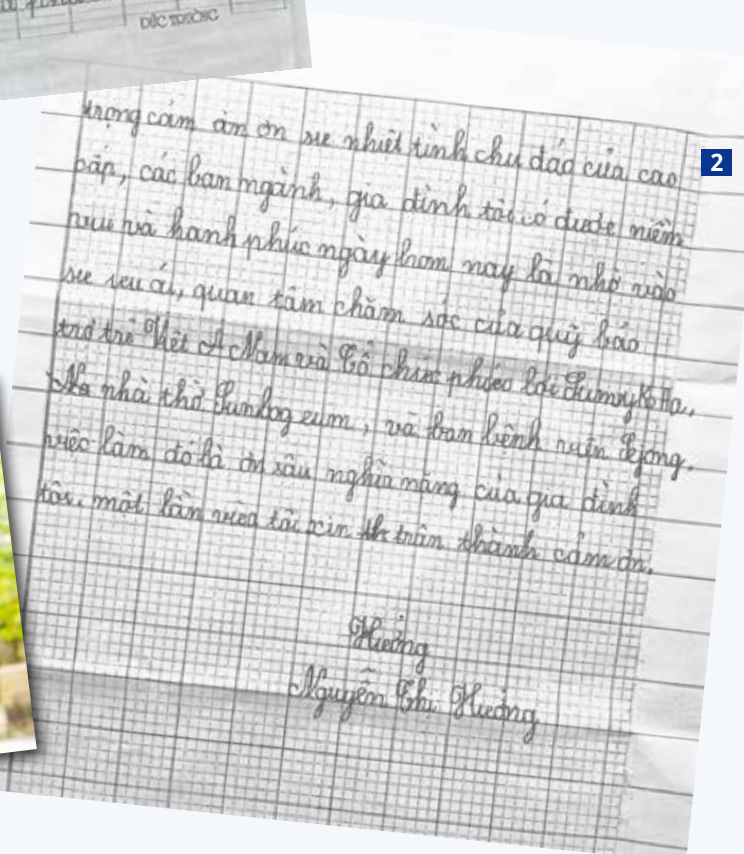 ĐỨC TRƯỜNG
2
trọng cám ơn ơn sự nhiệt tình chu đáo của cao
cấp, các ban ngành, gia đình tôi có được niềm
vui và hạnh phúc ngày hôm nay là nhờ vào
sự ưu ái, quan tâm chăm sóc của quỹ bảo
trợ trẻ Việt A Nam và Tổ chức phúc lợi
nhà thờ Sunlog eum, và ban bệnh viện
việc làm đó là ơn sâu nghĩa nặng của gia đình
tôi. một lần nữa tôi xin trân thành cảm ơn.
Hưởng
Nguyễn Thị Hưởng